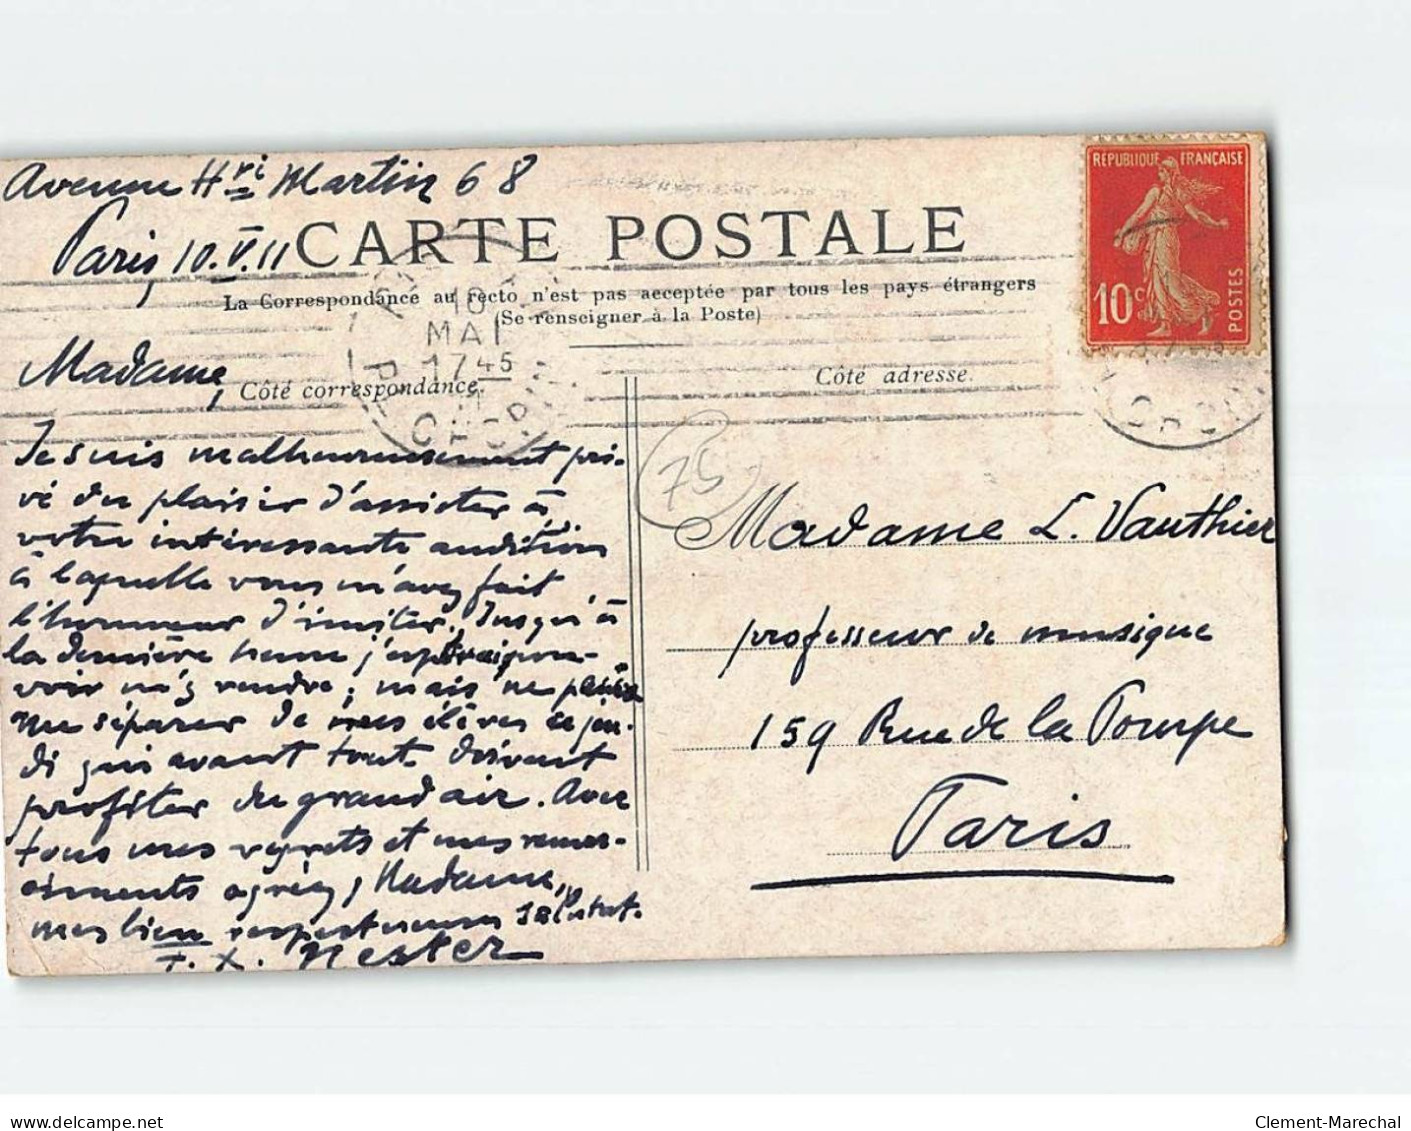 Avenue Hri Martin 68
Paris, 10.V.11
CARTE POSTALE
La Correspondance au recto n'est pas acceptée par tous les pays étrangers
(Se renseigner à la Poste)
RÉPUBLIQUE FRANÇAISE
10c
POSTES
10
MAI
1745
11
Côté correspondance.
Côté adresse.
75
Madame,
Je suis malheureusement pri-
vé du plaisir d'assister à
votre intéressante audition
à laquelle vous m'avez fait
l'honneur d'inviter. Jusqu'à
la dernière heure j'espérais pou-
voir m'y rendre; mais ne
me séparer de mes élèves ce jeu-
di qui avant tout doivent
profiter du grand air. Avec
tous mes regrets et mes remer-
ciments agréez, Madame,
mes bien respectueuses salutat.
F. X. Nester
Madame L. Vauthier
professeur de musique
159 Rue de la Pompe
Paris
delcampe.net
Clement-Marechal